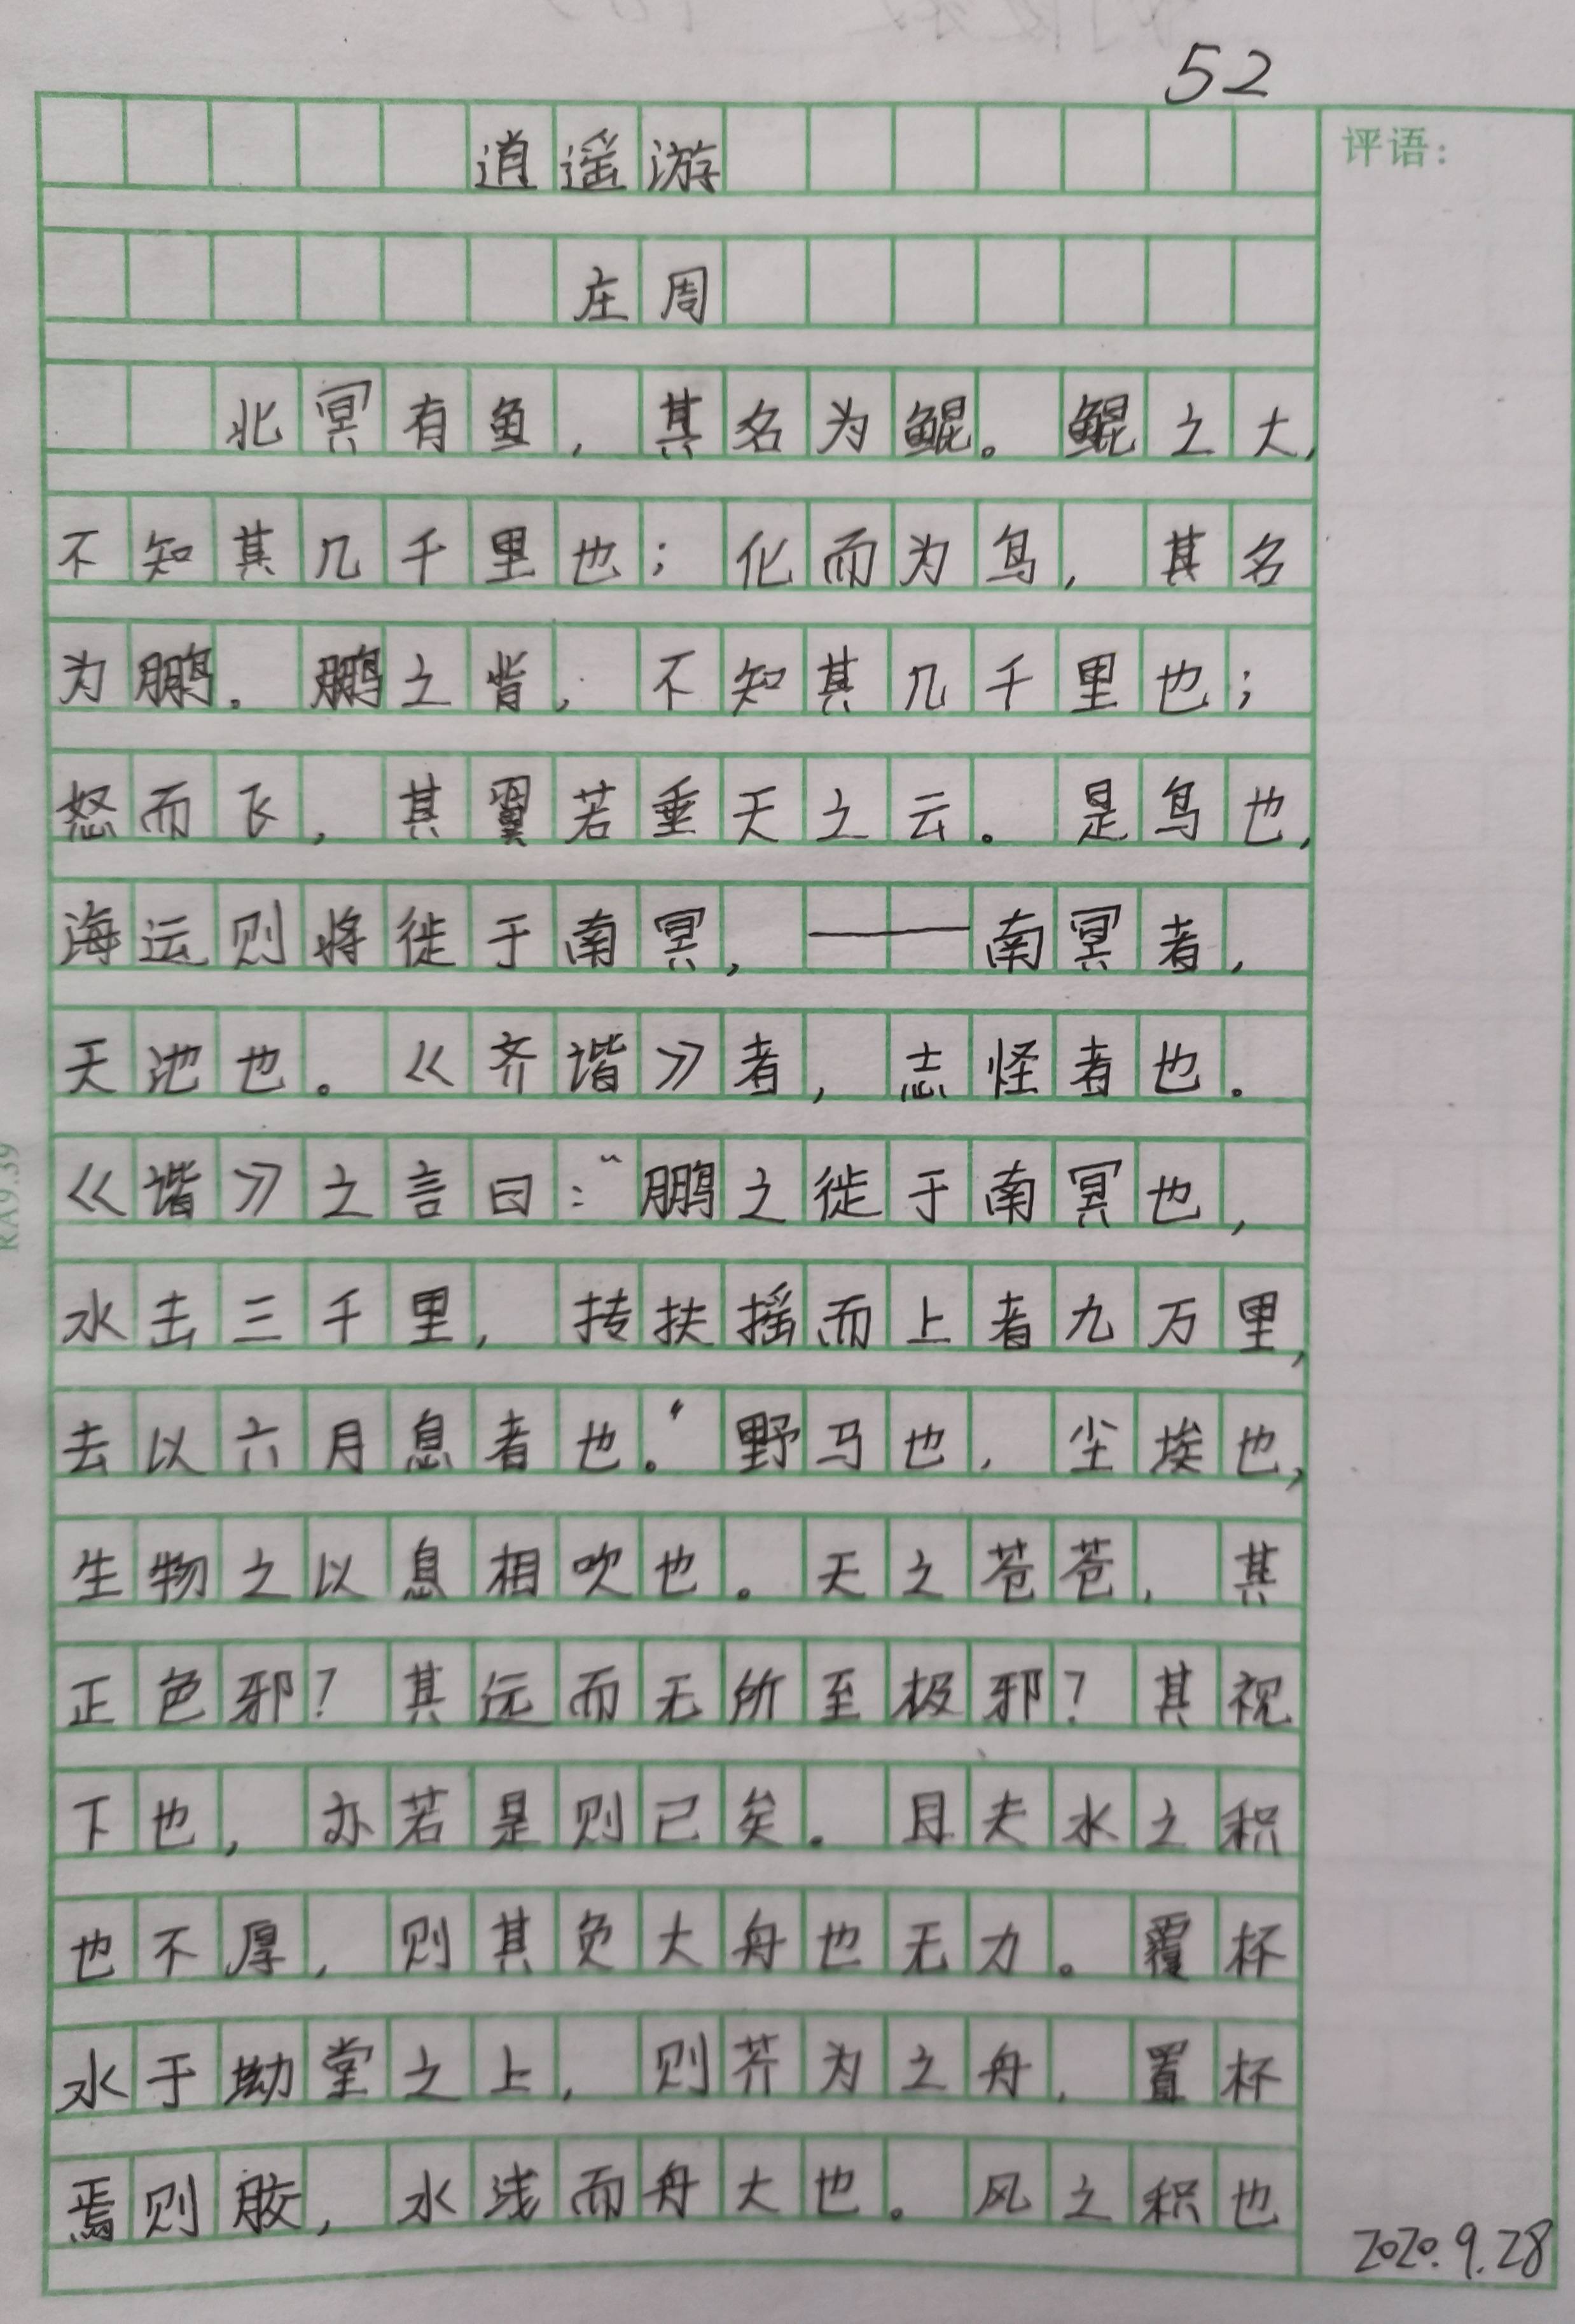 52
评语：
逍遥游
庄周
北冥有鱼，其名为鲲。鲲之大，
不知其几千里也；化而为鸟，其名
为鹏。鹏之背，不知其几千里也；
怒而飞，其翼若垂天之云。是鸟也，
海运则将徙于南冥，——南冥者，
天池也。《齐谐》者，志怪者也。
《谐》之言曰：“鹏之徙于南冥也，
水击三千里，抟扶摇而上者九万里，
去以六月息者也。”野马也，尘埃也，
生物之以息相吹也。天之苍苍，其
正色邪？其远而无所至极邪？其视
下也，亦若是则已矣。且夫水之积
也不厚，则其负大舟也无力。覆杯
水于坳堂之上，则芥为之舟，置杯
焉则胶，水浅而舟大也。风之积也
2020.9.28
RA9.39